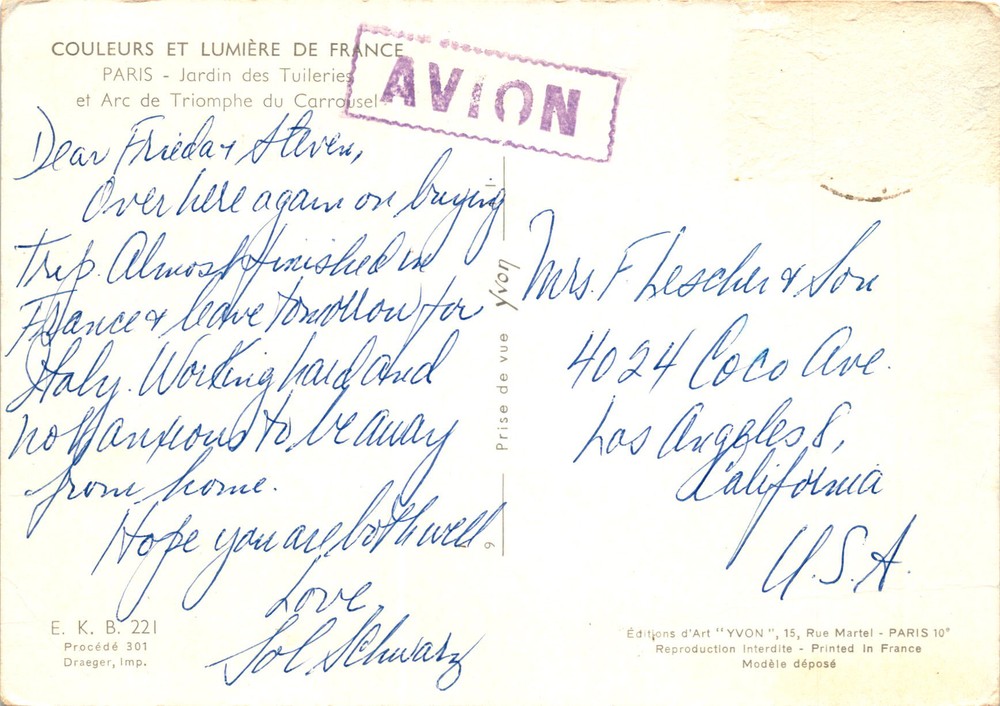 COULEURS ET LUMIÈRE DE FRANCE
PARIS - Jardin des Tuileries
et Arc de Triomphe du Carrousel
AVION
Dear Frieda & Steven,
Over here again on buying
Trip. Almost finished in
France & leave Tomorrow for
Italy. Working hard and
not anxious to be away
from home.
Hope you are both well
Love
Sol Schwarz
E. K. B. 221
Procédé 301
Draeger, Imp.
Prise de vue yvon
6
Mrs. F Lescher & Son
4024 Coco Ave.
Los Angeles 8,
California
U.S.A.
Éditions d'Art "YVON", 15, Rue Martel - PARIS 10e
Reproduction Interdite - Printed In France
Modèle déposé